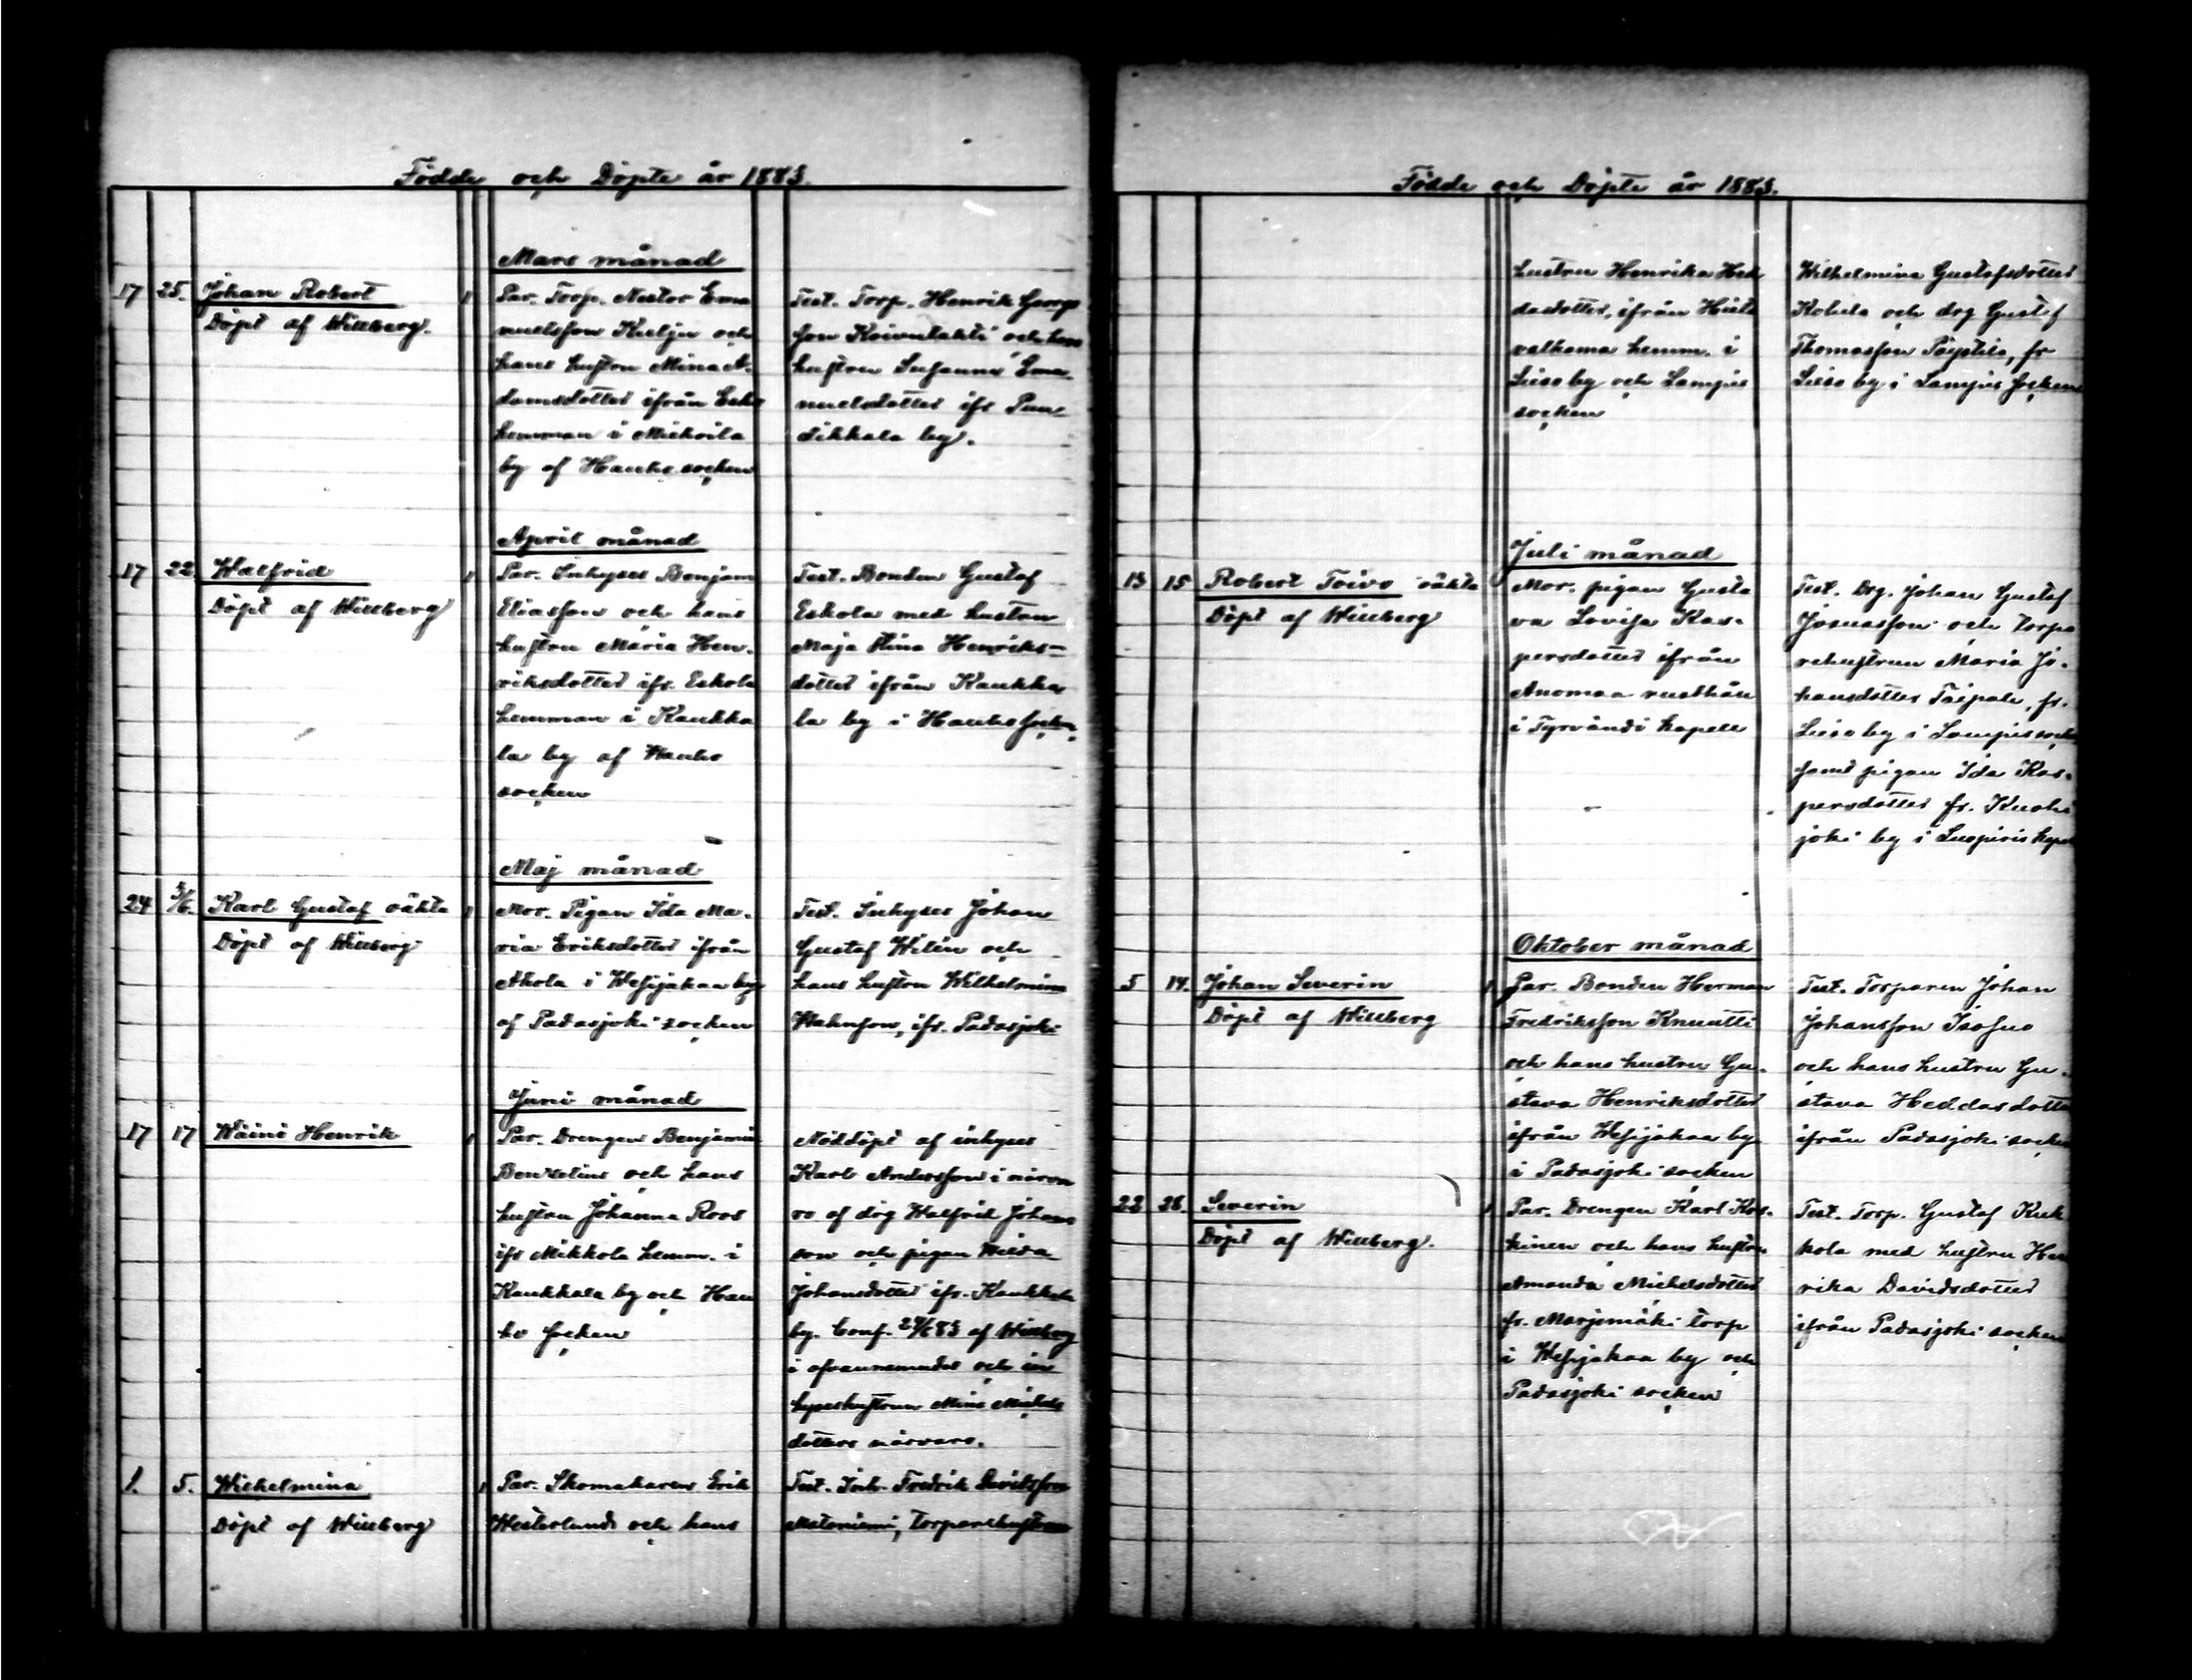 Födde och Döpte år 1883.
Mars månad
17 25. Johan Robert
Döpt af Willberg.
Par. Torp. Nestor Ema
nuelsson Kulju och
hans hustru Mina A-
damsdotter ifrån Esko
hemman i Miehoila
by af Hauho socken
Test. Torp. Henrik Georgs
son Koivulahti och hans
hustru Susanna Ema-
nuelsdotter ifr
dikkala by.
April månad
17 22 Walfrid
Döpt af Willberg
Par. Inhyses Benjam
Eliasson och hans
hustru Maria Hen-
riksdotter ifr. Eskola
hemman i Kaukka
la by af Hauho
socken
Test. Bonden Gustaf
Eskola med hustru
Maja Stina Henriks-
dotter ifrån Kaukka
la by i Hauho socken
Maj månad
24 3/6. Karl Gustaf oäkta
Döpt af Willberg
Mor. Pigan Ida Ma-
ria Eriksdotter ifrån
Ahola i Wesijakaa by
af Padasjoki socken
Test. Inhyses Johan
Gustaf Wilén och
hans hustru Wilhelmina
ifr. Padasjoki
Juni månad
17 17 Wäinö Henrik
Par. Drengen Benjamin
Benzelius och hans
hustru Johanna Roos
ifr Mikkola hemm. i
Kaukkala by och Hau
ho socken
Nöddöpt af inhyses
Karl Andersson i närva
ro af drg Walfrid Johans
son och pigan Hilda
Johansdotter ifr. Kaukkala
by. Conf. 24/6 83 af Willberg
i ofvannemndes och in
hyseshustrun Mina Michels
dotters närvaro.
1. 5. Wilhelmina
Döpt af Willberg
Par. Skomakaren Erik
Westerlund och hans
Test. Inh. Fredrik Davidsson
Mataniemi, torparehustrun
Födde och Döpte år 1883.
hustru Henrika Hed
dasdotter, ifrån Huhta
valkama hemm. i
Lieso by och Lampis
socken
Wilhelmina Gustafsdotter
och drg Gustaf
Thomasson fr
Lieso by i Lampis socken
Juli månad
13 15 Robert Toivo oäkta
Döpt af Willberg
Mor. pigan Gusta
va Lovisa Kas-
persdotter ifrån
Anomaa rusthåll
i Tyrväntö kapell
Test. Drg. Johan Gustaf
Josuasson och torpa
rehustrun Maria Jo-
hansdotter Taipale, fr.
Lieso by i Lampis socken
samt pigan Ida Kas-
persdotter fr. Kuohi
joki by i Luopiois kapell
Oktober månad
5 14. Johan Severin
Döpt af Willberg
Par. Bonden Herman
Fredriksson Knuutti
och hans hustru Gu-
stava Henriksdotter
ifrån Wesijakaa by
i Padasjoki socken
Test. Torparen Johan
Johansson Isosuo
och hans hustru Gu-
stava Heddasdotter
ifrån Padasjoki socken
22 26. Severin
Döpt af Willberg.
Par. Drengen Karl Kos-
kinen och hans hustru
Amanda Michelsdotter
fr. Marjomäki torp
i Wesijakaa by och
Padasjoki socken
Test. Torp. Gustaf Kuk
kola med hustru Hen
rika Davidsdotter
ifrån Padasjoki socken